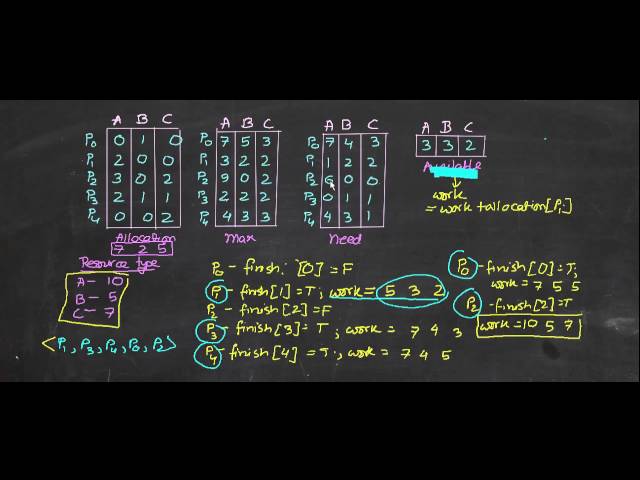 A B C
P0 0 1 0
P1 2 0 0
P2 3 0 2
P3 2 1 1
P4 0 0 2
Allocation
7 2 5
A B C
P0 7 5 3
P1 3 2 2
P2 9 0 2
P3 2 2 2
P4 4 3 3
Max
A B C
P0 7 4 3
P1 1 2 2
P2 6 0 0
P3 0 1 1
P4 4 3 1
Need
A B C
3 3 2
Available
work
= work + allocation[Pi]
Resource type
A - 10
B - 5
C - 7
<P1, P3, P4, P0, P2>
P0 - finish [0] = F
P1 - finsh[1] = T; work = 5 3 2
P2 - finish[2] = F
P3 - finish[3] = T; work = 7 4 3
P4 - finish[4] = T; work = 7 4 5
P0 - finish[0] = T,
work = 7 5 5
P2 - finish[2] = T
work = 10 5 7